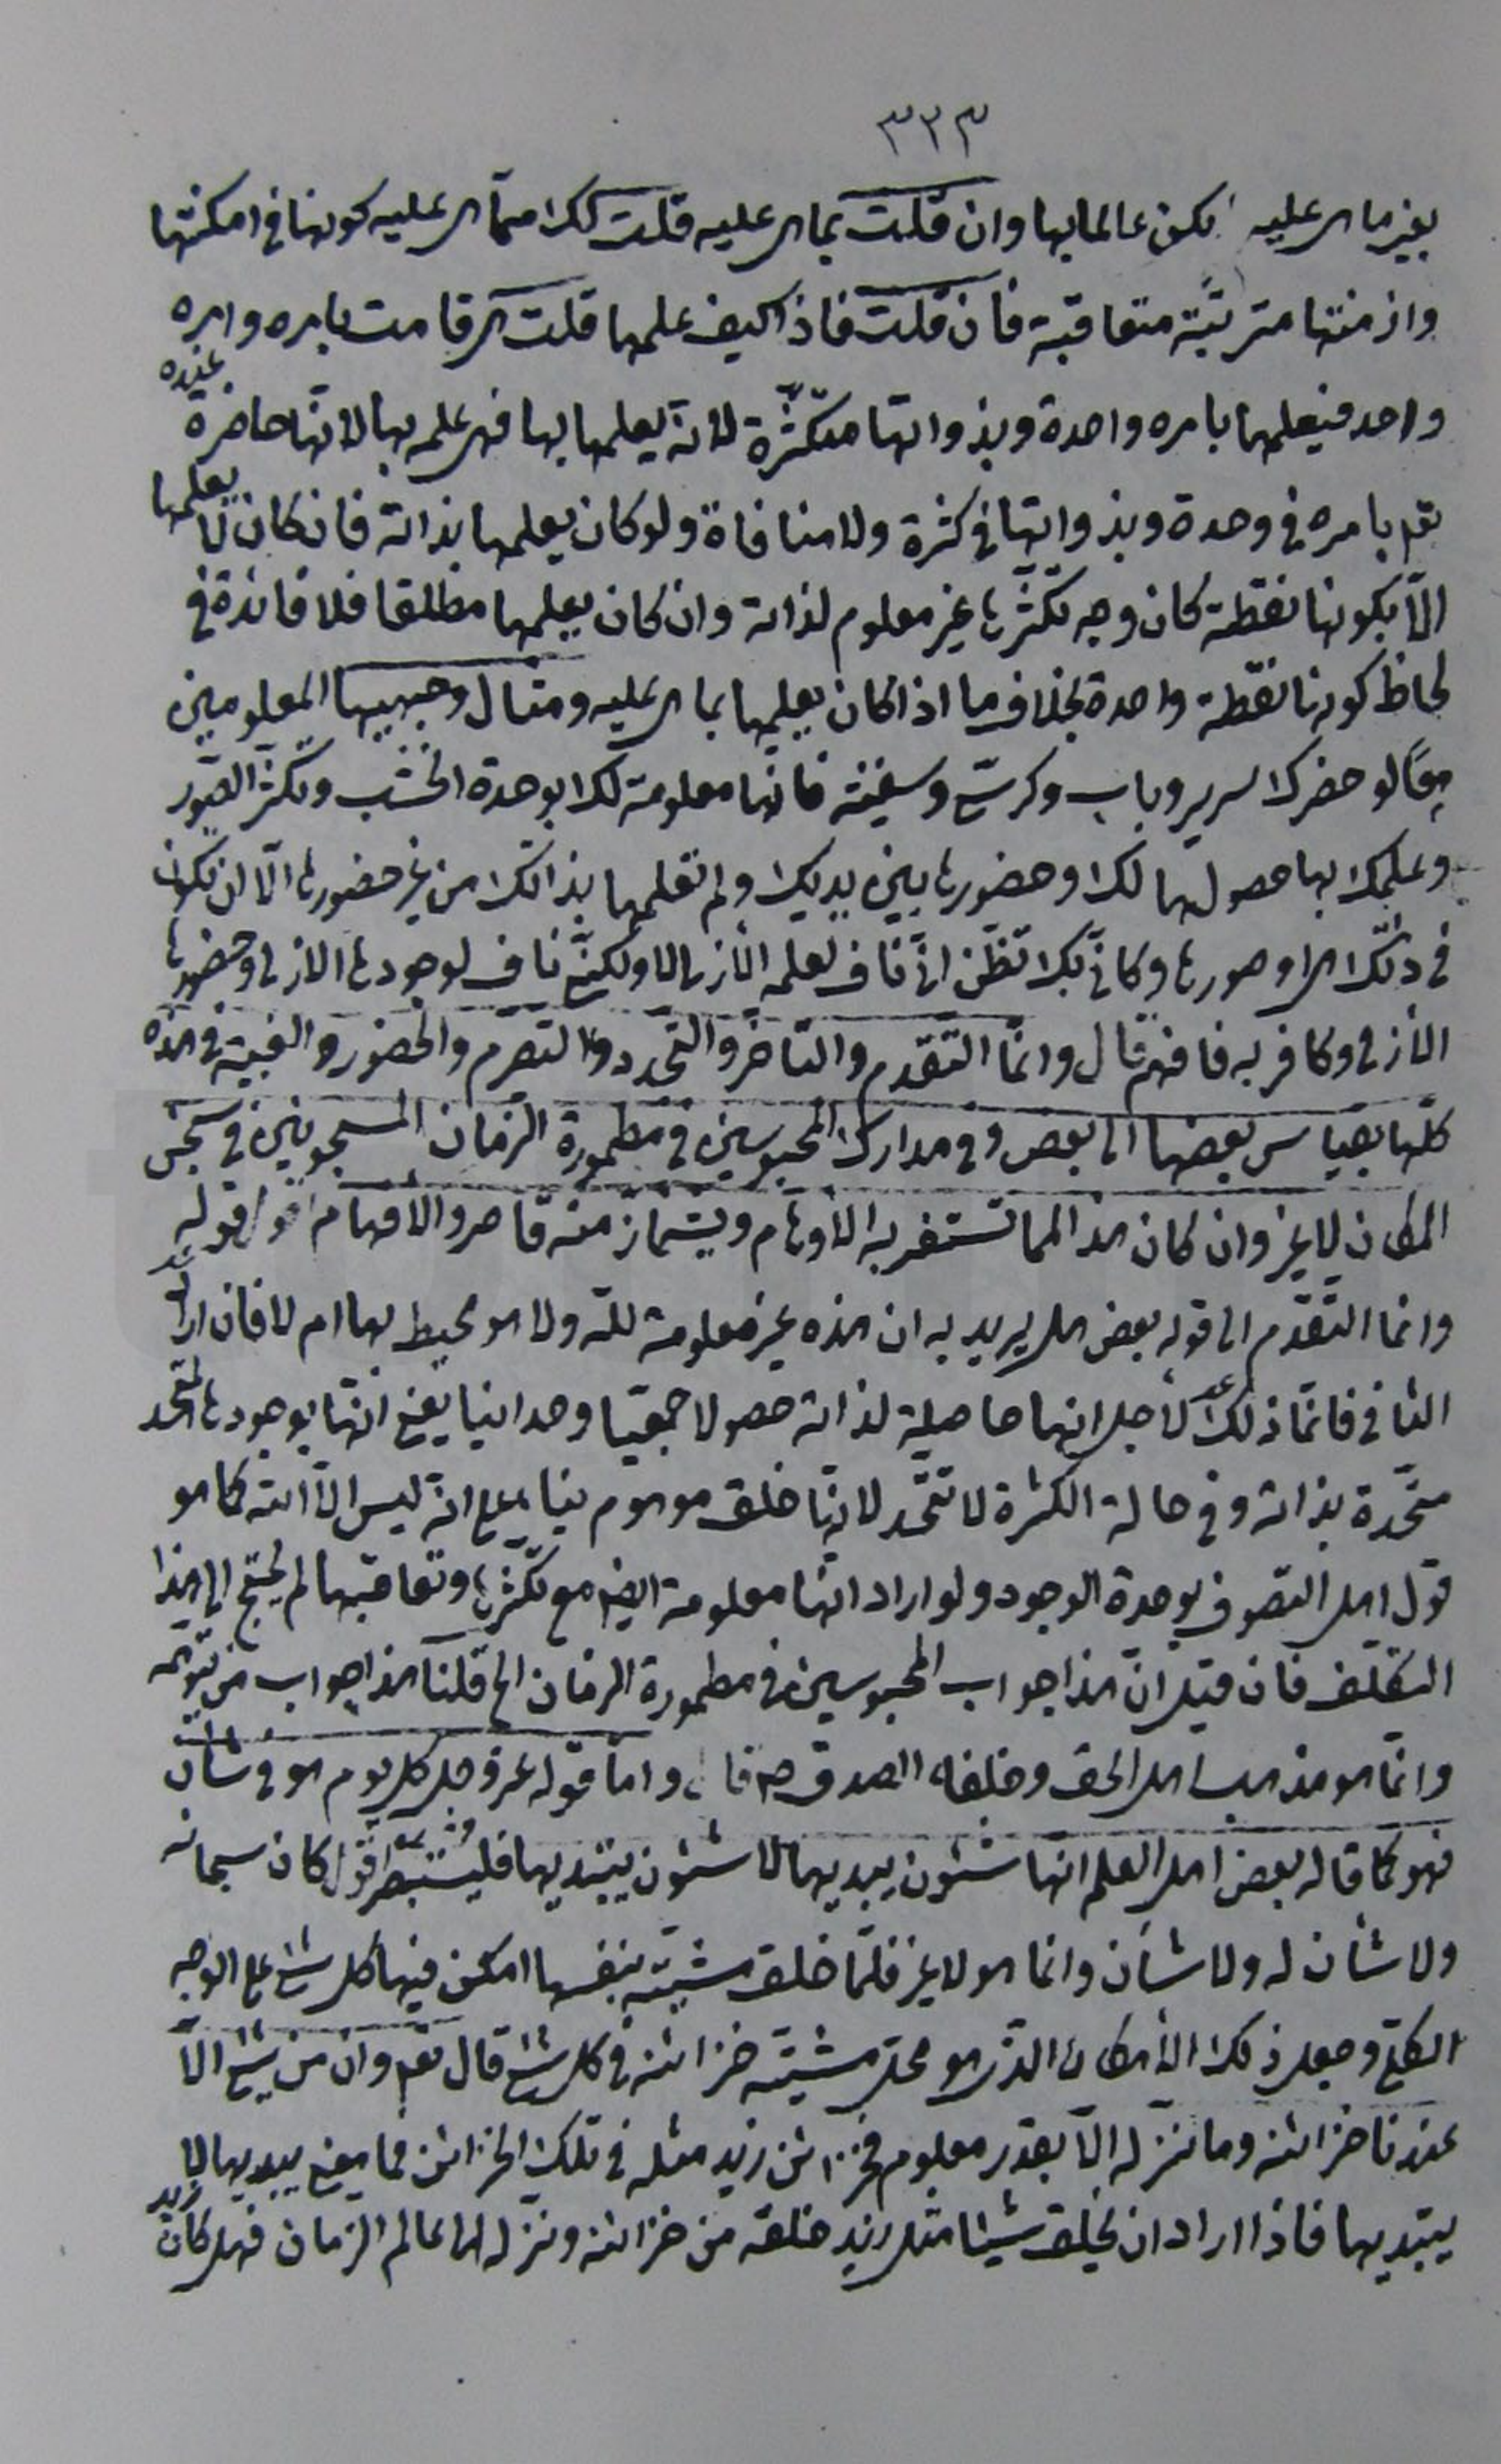 ٣٢٣
بغير ما هى عليه لم يكن عالما بها وان قلت بما هى عليه قلت لك مما هى عليه كونها فى امكنتها
وازمنتها مترتبة متعاقبة فان قلت فاذا كيف علمها قلت هى قامت بامره وامره
واحد فيعلمها بامره واحدة وبذواتها متكثّرة لانه يعلمها بها فهى علمه بها لانها حاضرة عنده
بامره فى وحدة وبذواتها فى كثرة ولا منافاة ولو كان يعلمها بذاته فان كان لا يعلمها
الّا بكونها نقطة كان وجه تكثّرها غير معلوم لذاته وان كان يعلمها مطلقا فلا فائدة فى
لحاظ كونها نقطة واحدة بخلاف ما اذا كان يعلمها بما هى عليه ومثال وجهيها المعلومين
لو حضرك سرير وباب وكرسىّ وسفينة فانّها معلومة لك بوحدة الخشب وتكثّر الصّور
وعلمك بها حصولها لك وحضورها بين يديك ولم تعلمها بذاتك من غير حضورها الّا ان تكون
فى ذاتك هى او صورها وكانى بك تظنّ انى ناف لعلمه الازلى لا ولكنّى ناف لوجودها الازلى وحضورها
الأزلى وكافر به فافهم قال وانّما التقدم والتاخّر والتجدد والتصرّم والحضور والغيبة فى هذه
كلّها بقياس بعضها الى بعض وفى مدارك المحبوسين فى مطمورة الزمان المسجونين فى سجن
المكان لا غير وان كان هذا لمما تستغربه الأوهام ويشمأز منه قاصروا الافهام اقول قوله
وانما التقدّم الى قوله بعض هل يريد به ان هذه غير معلومة للّه ولا هو محيط بها ام لا فان اراد
الثانى فانّما ذلك لأجل انها حاصلة لذاته حصولا جمعيا وحدانيا يعنى انّها بوجودها المتّحد
متّحدة بذاته وفى حالة الكثرة لا تتّحد لانها خلق موهوم بناء على انه ليس الّا الله كما هو
قول اهل التصوف بوحدة الوجود ولو اراد انها معلومة ايضا مع تكثّرها وتعاقبها لم يحتج الى هذا
التكلّف فان قيل انّ هذا جواب المحبوسين فى مطمورة الزمان الخ قلنا هذا جواب من توهّمه
وانّما هو مذهب اهل الحق وخلفاء الصدق ص قال وامّا قوله عز وجل كل يوم هو فى شأن
فهو كما قاله بعض اهل العلم انها شئون يبديها لا شئون يبتديها فليستبصر اقول كان سبحانه
ولا شأن له ولا شأن وانما هو لا غير فلمّا خلق مشيته بنفسها امكن فيها كل شئ على الوجه
الكلّى وجعل ذلك الأمكان الذى هو محل مشيّته خزائنه فى كل شئ قال تعم وان من شئ الّا
عندنا خزائنه وما ننزله الّا بقدر معلوم فخزائن زيد مثله فى تلك الخزائن فما معنى يبديها لا
يبتديها فاذا اراد ان يخلق شيئا مثل زيد خلقه من خزائنه ونزله الى عالم الزمان فهل كان زيد